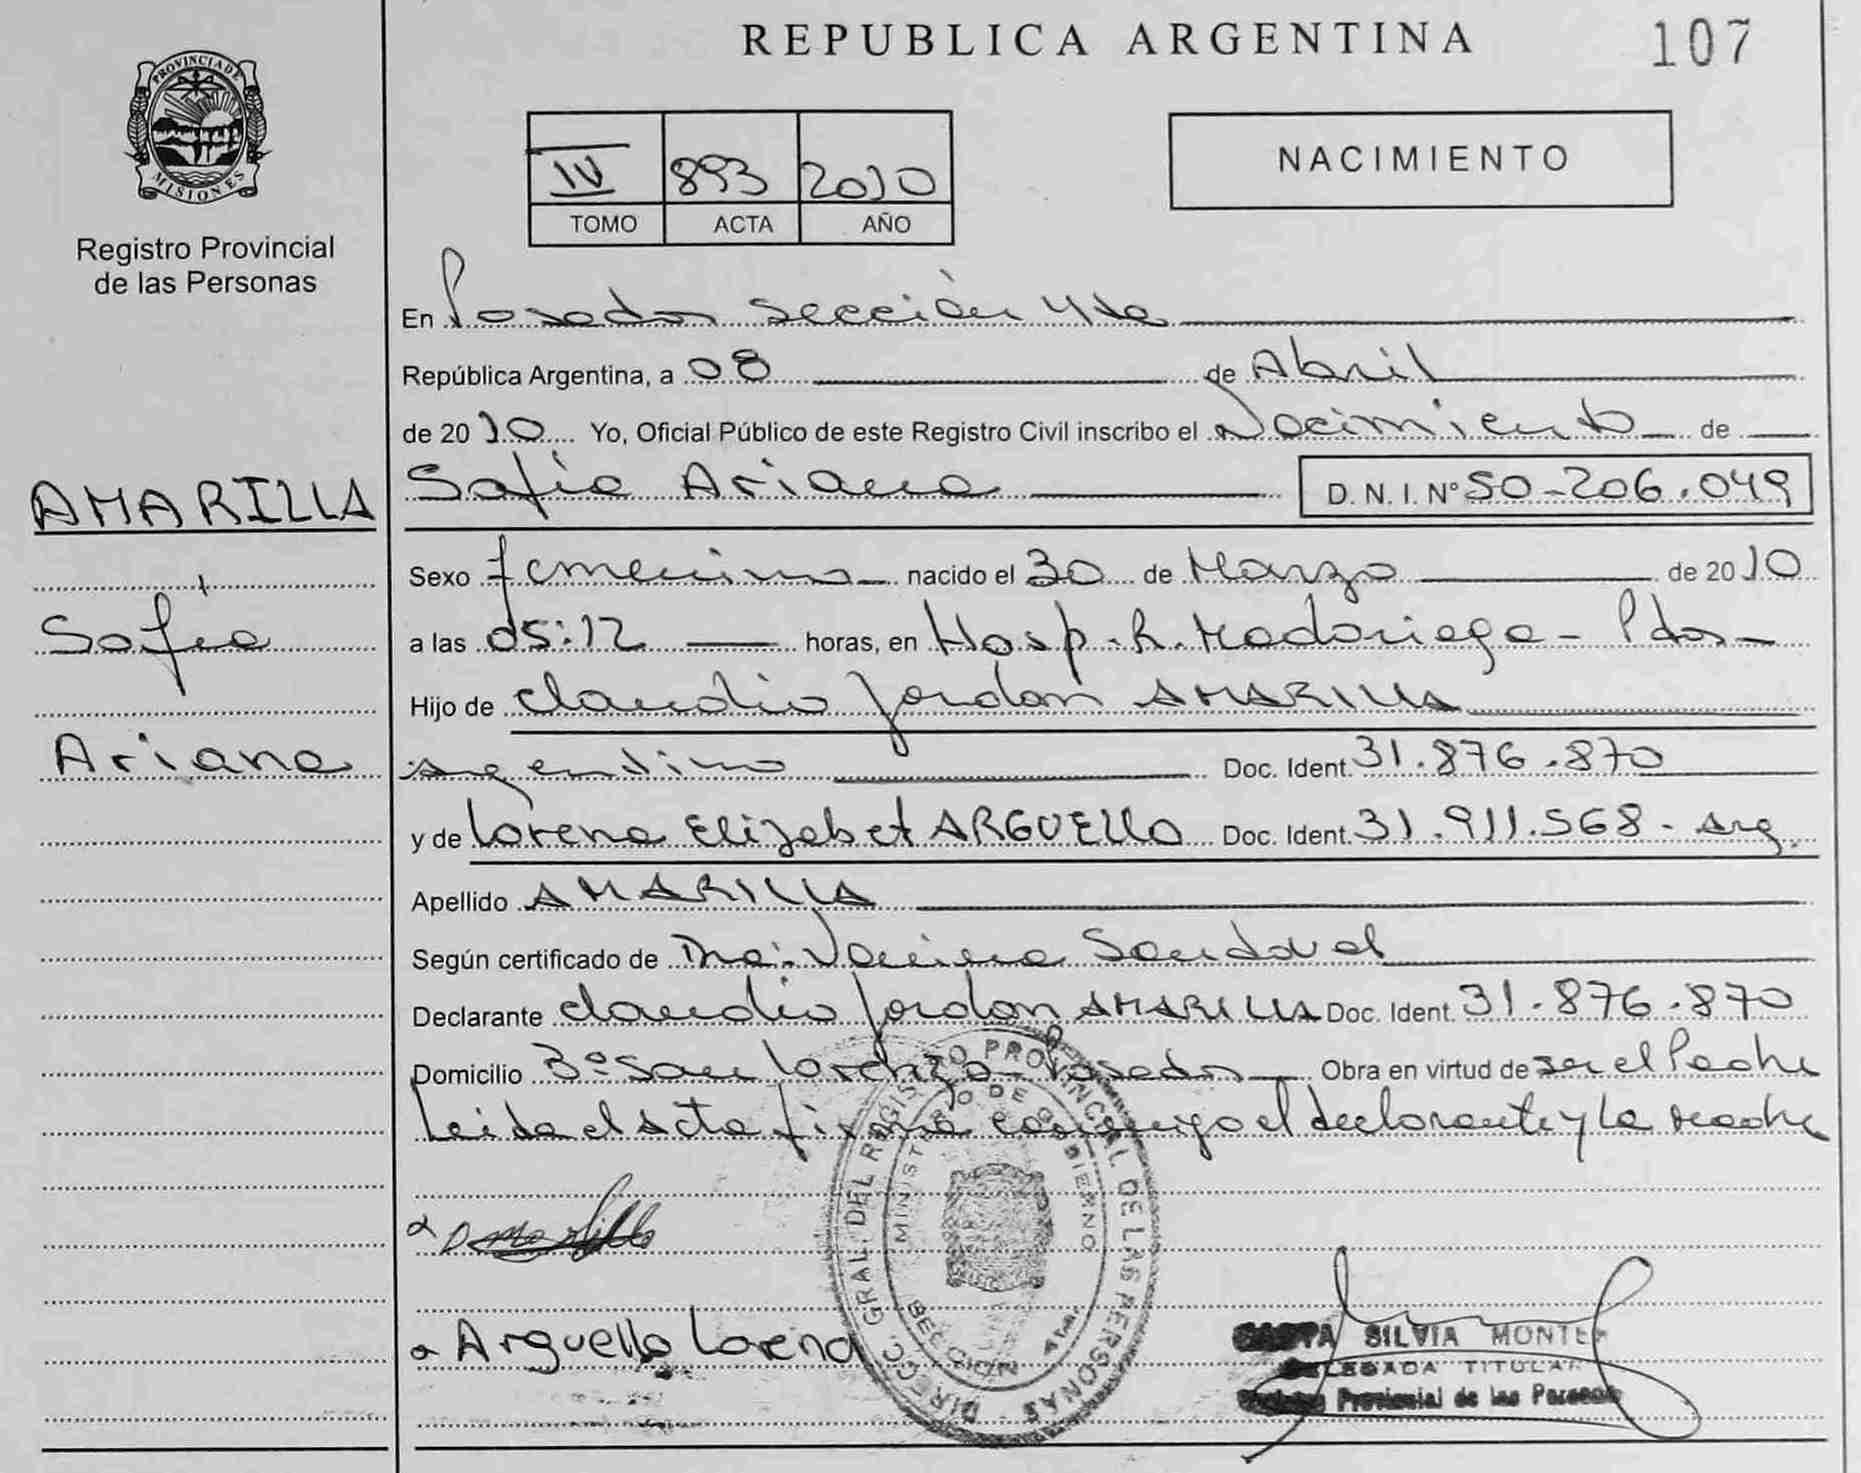 REPUBLICA ARGENTINA
107
PROVINCIA DE MISIONES
Registro Provincial
de las Personas
IV 893 2010
TOMO ACTA AÑO
NACIMIENTO
En Posadas sección 4ta
República Argentina, a 08 de Abril
de 2010 Yo, Oficial Público de este Registro Civil inscribo el Nacimiento de
AMARILLA
Sofía
Ariana
Sofía Ariana D.N.I. Nº 50-206.049
Sexo femenino nacido el 30 de Marzo de 2010
a las 05:12 horas, en Hosp. R. Madariaga - Pdas -
Hijo de Claudio Jordan AMARILLA
argentino Doc. Ident. 31.876.870
y de Lorena Elizabet ARGUELLO Doc. Ident. 31.911.568 - arg.
Apellido AMARILLA
Según certificado de Dra. Sandoval
Declarante Claudio Jordan AMARILLA Doc. Ident. 31.876.870
Domicilio Bº San Lorenzo - Posadas Obra en virtud de ser el Padre
Leida el acta firma conmigo el declarante y la madre
Amarilla
Arguello Lorena
DIRECC. GRAL. DEL REGISTRO PROVINCIAL DE LAS PERSONAS
MINISTERIO DE GOBIERNO
SECCION 4ta.
SILVIA MONTE
DELEGADA TITULAR
Registro Provincial de las Personas